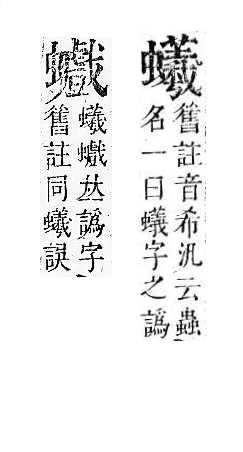 舊註音希汎云蟲
名一曰蟻字之譌
𠀤譌字
舊註同蟻誤